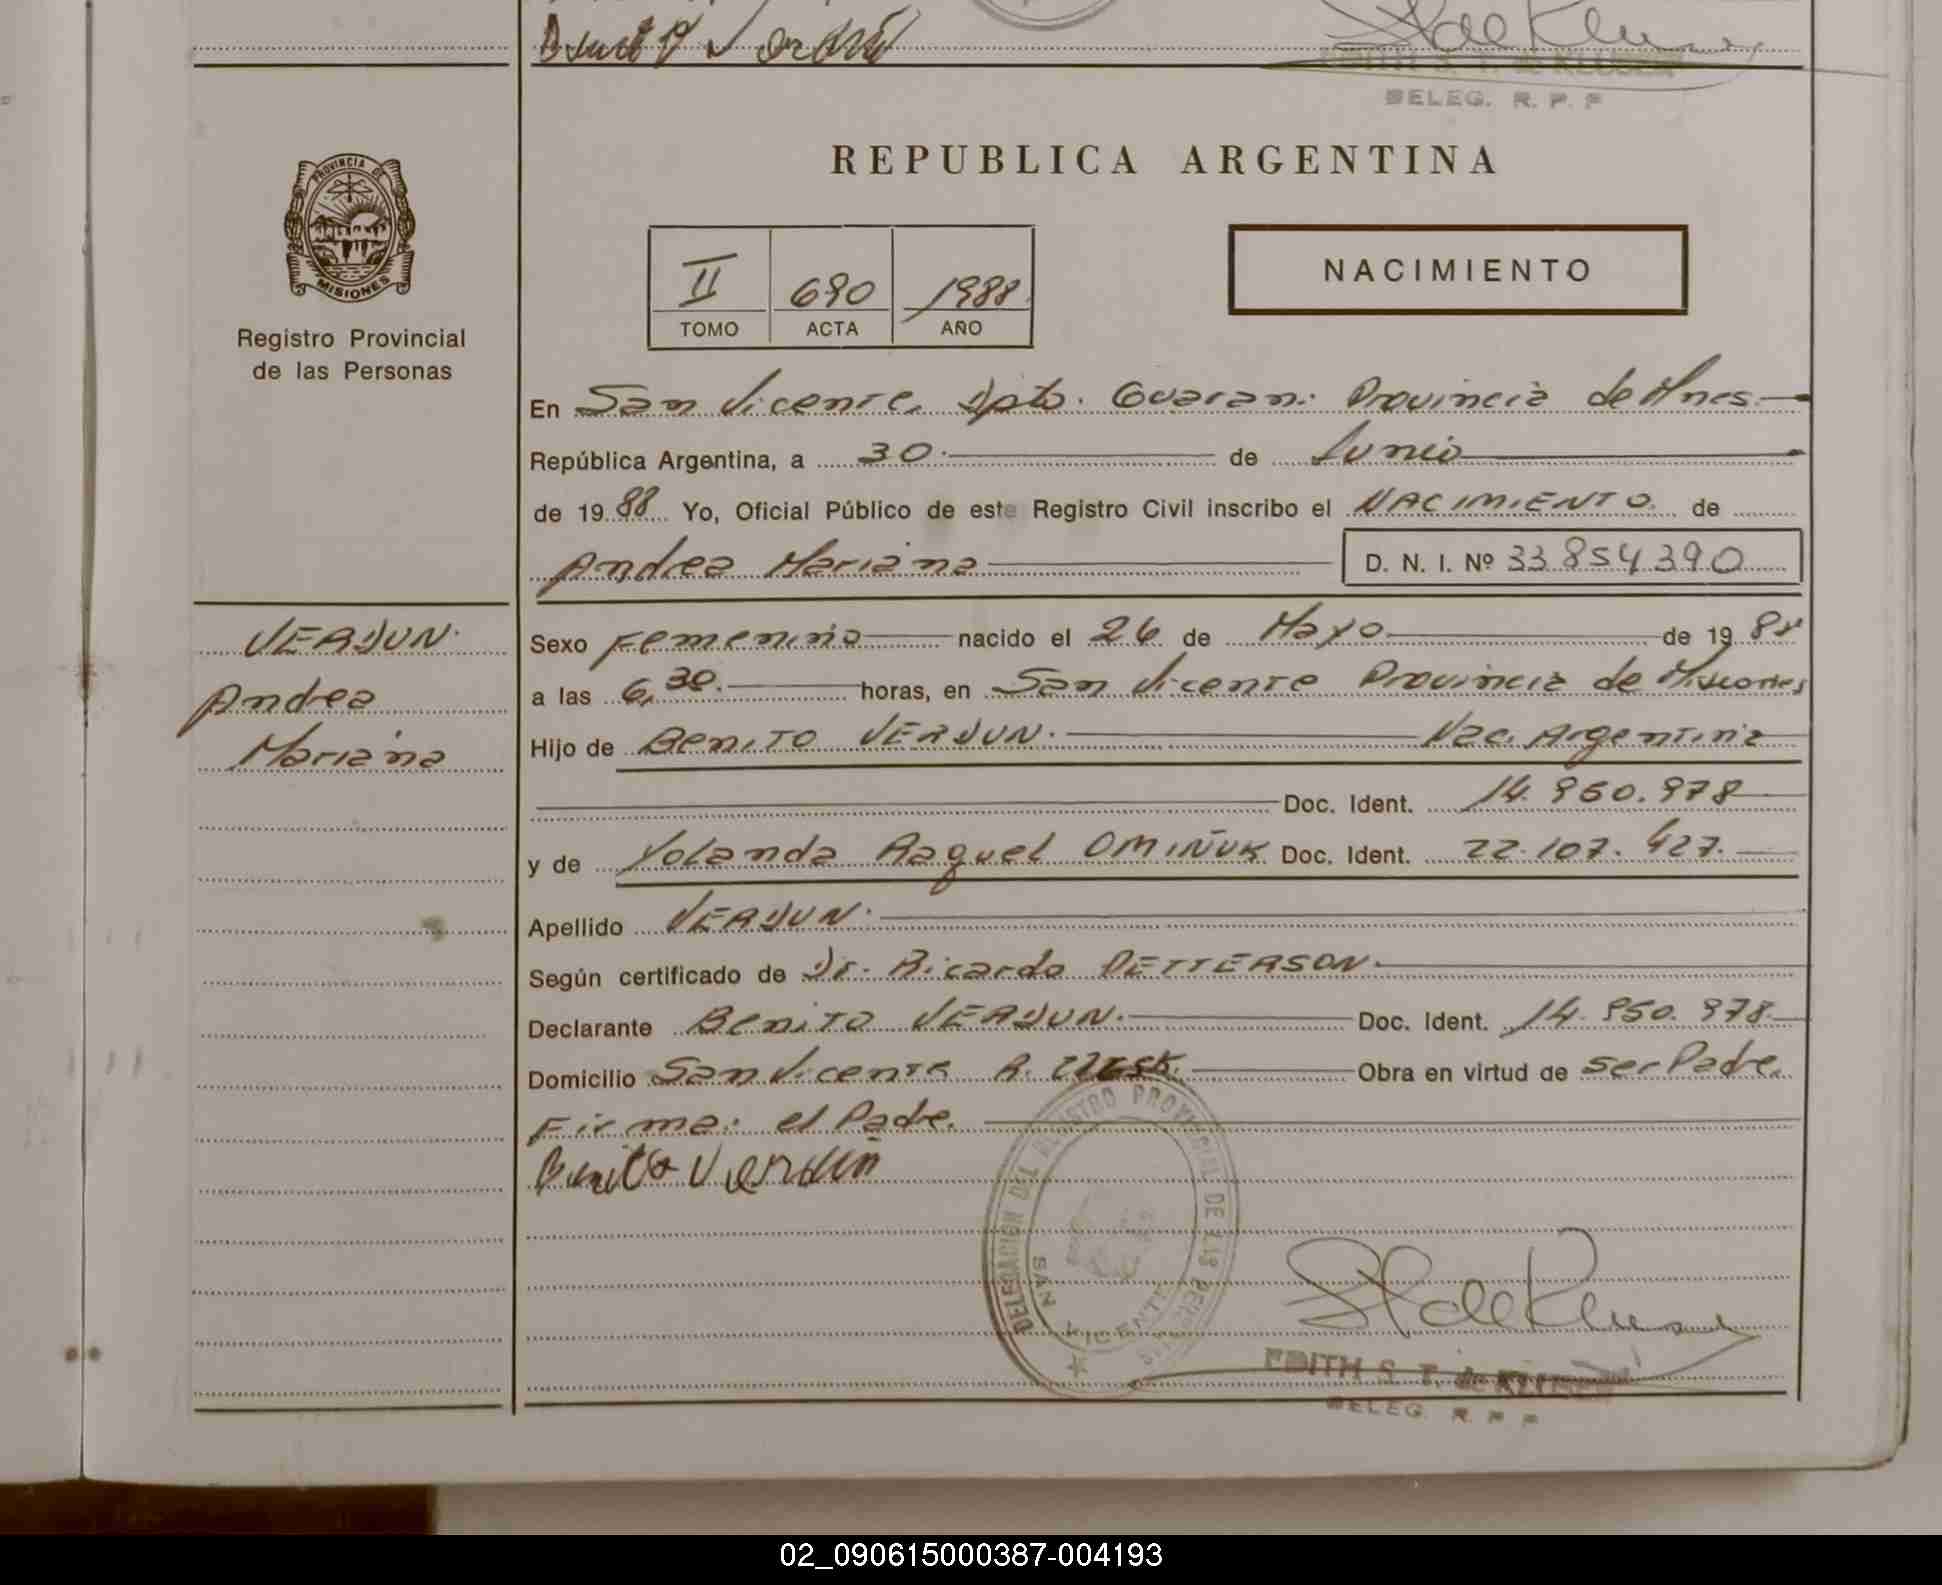 Benito Verdún
EDITH S. T. de KLUSENER
DELEG. R. P. P
PROVINCIA DE
MISIONES
Registro Provincial
de las Personas
REPUBLICA ARGENTINA
II 690 1988
TOMO ACTA AÑO
NACIMIENTO
En San Vicente, Dpto. Guarani Provincia de Mnes.
República Argentina, a 30. de Junio
de 1988 Yo, Oficial Público de este Registro Civil inscribo el NACIMIENTO de
Andrea Mariana D. N. I. Nº 33.854.390
VERDUN.
Andrea
Mariana
Sexo Femenino nacido el 26 de Mayo de 1988
a las 6,30. horas, en San Vicente Provincia de Misiones
Hijo de Benito VERDUN. Nac. Argentina
Doc. Ident. 14.950.978
y de Yolanda Raquel OMIÑUK Doc. Ident. 22.107.427.
Apellido VERDUN.
Según certificado de Dr. Ricardo PETTERSON.
Declarante Benito VERDUN. Doc. Ident. 14.950.978.
Domicilio San Vicente Obra en virtud de ser Padre.
Firma: el Padre.
Benito Verdún
DELEGACION DEL REGISTRO PROVINCIAL DE LAS PERSONAS
SAN VICENTE
EDITH S. T. de KLUSENER
DELEG. R. P. P
02_090615000387-004193